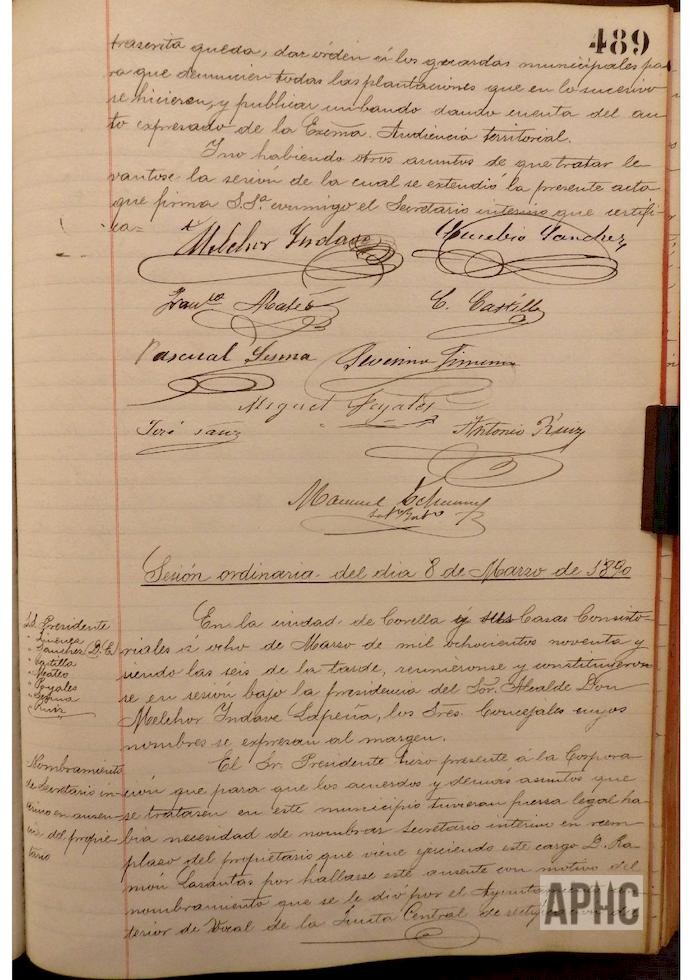 489
trascrita queda, dar órden á los guardas municipales pa-
ra que denuncien todas las plantaciones que en lo sucesivo
se hicieren, y publicar un bando dando cuenta del au-
to expresado de la Excma. Audiencia territorial.
Y no habiendo otros asuntos de que tratar le
vantose la sesión de la cual se extendió la presente acta
que firma S.Sª conmigo el Secretario interino que certifi-
ca=
Melchor Yndave
Eusebio Sanchez
Franco Mateo
C. Castilla
Pascual Sesma
Severino Jimenez
Miguel
José Sanz
Antonio Ruiz
Manuel
Sesión ordinaria del dia 8 de Marzo de 1890
Sd. Presidente
" Jimenez
" Sanchez (D. E)
" Castilla
" Mateo
" Sesma
" Ruiz
En la ciudad de Corella y sus Casas Consisto-
riales á ocho de Marzo de mil ochocientos noventa y
siendo las seis de la tarde, reunieronse y constituyeron-
se en sesion bajo la presidencia del Sor. Alcalde Don
Melchor Yndave Lapeña, los Sres. Concejales cuyos
nombres se expresan al margen.
Nombramiento
de Secretario in-
terino en ausen-
cia del propie-
tario
El Sr. Presidente hizo presente á la Corpora
ción que para que los acuerdos y demas asuntos que
se tratasen en este municipio tuvieran fuerza legal ha-
bia necesidad de nombrar Secretario interino en reem-
plazo del propietario que viene ejerciendo este cargo D. Ra-
món Lasantas por hallarse este ausente con motivo del
nombramiento que se le dió por el Ayuntamiento
terior de Vocal de la Junta Central de
APHC